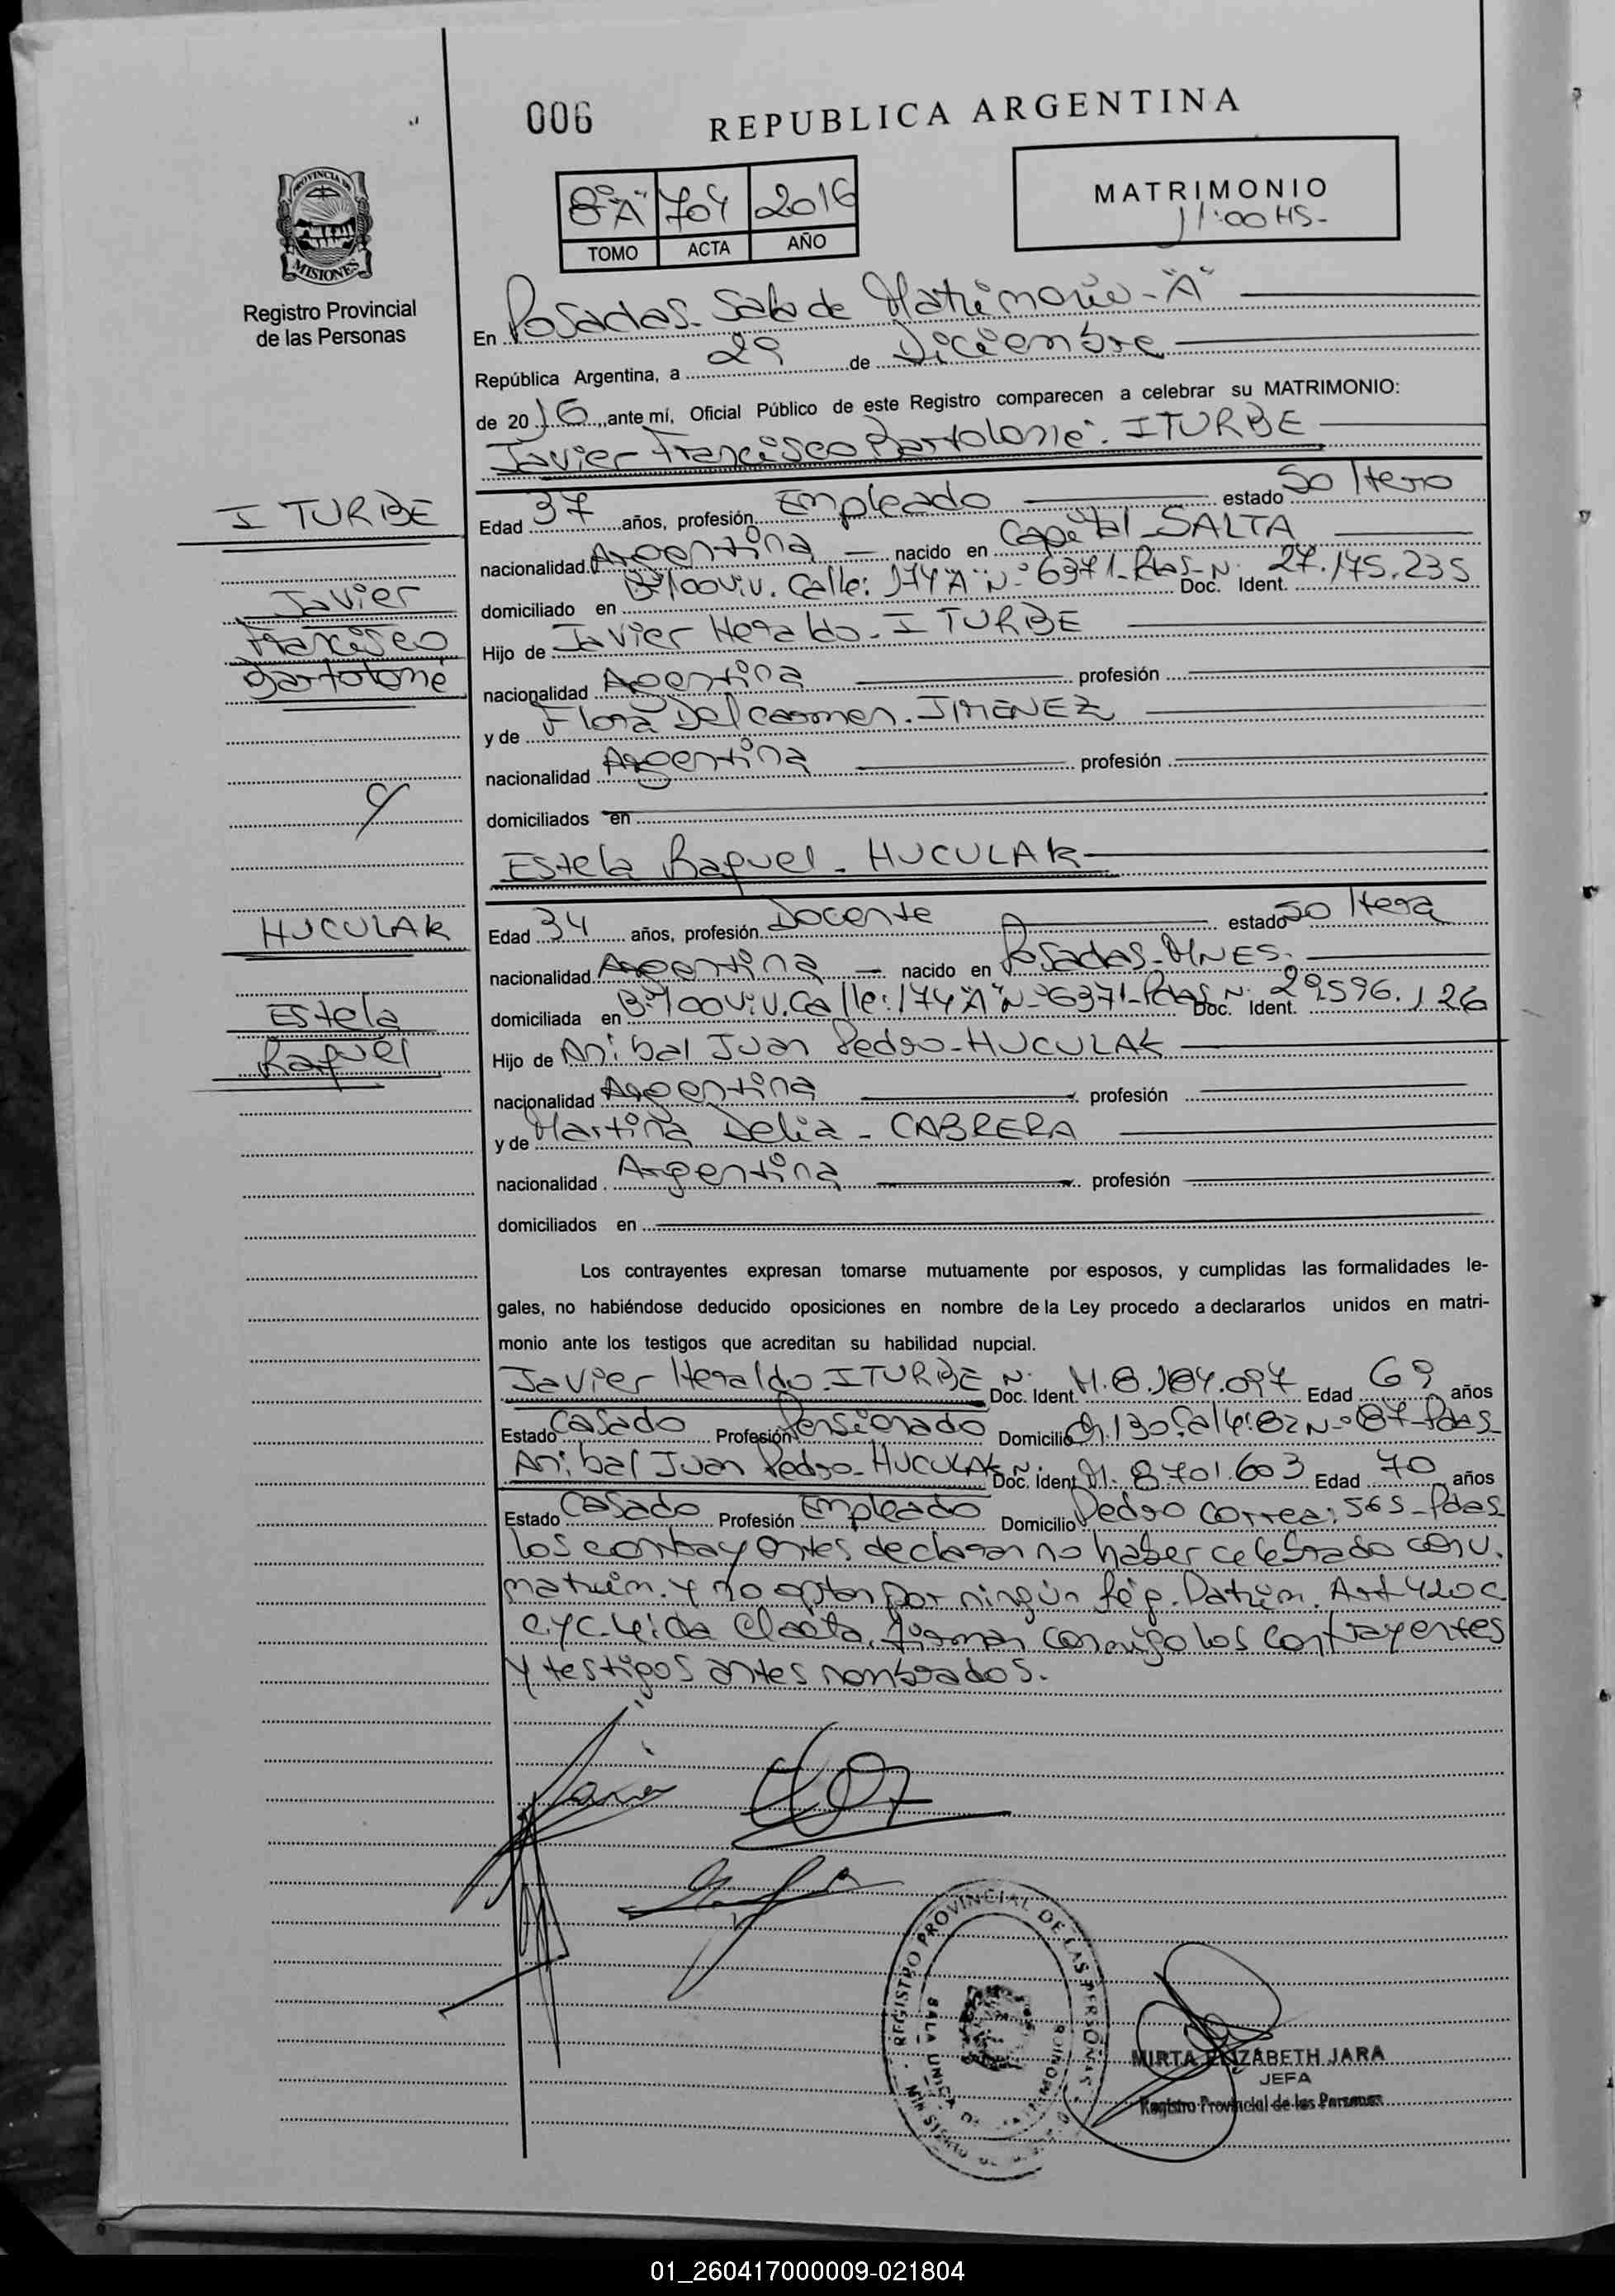 006
REPUBLICA ARGENTINA
PROVINCIA DE
MISIONES
Registro Provincial
de las Personas
8º"A" 704 2016
TOMO ACTA AÑO
MATRIMONIO
11:00 HS-
En Posadas- Sala de Matrimonio-"A"
República Argentina, a 29 de Diciembre
de 2016, ante mí, Oficial Público de este Registro comparecen a celebrar su MATRIMONIO:
Javier Francisco Bartolomé. ITURBE
ITURBE
Javier
Francisco
Bartolomé
Edad 37 años, profesión Empleado estado Soltero
nacionalidad Argentina nacido en Capital-SALTA
domiciliado en Bº100viv. Calle: 174"A"Nº6371-Pdas- Doc. Ident. N: 27.175.235
Hijo de Javier Heraldo-ITURBE
nacionalidad Argentina profesión
y de Flora Del Carmen. JIMENEZ
nacionalidad Argentina profesión
domiciliados en
c/
Estela Raquel - HUCULAK
HUCULAK
Estela
Raquel
Edad 34 años, profesión Docente estado Soltera
nacionalidad Argentina nacido en Posadas-MNES.
domiciliada en Bº100viv. Calle: 174"A"Nº6371-Pdas Doc. Ident. N: 29.596.126
Hijo de Anibal Juan Pedro-HUCULAK
nacionalidad Argentina profesión
y de Martina Delia - CABRERA
nacionalidad Argentina profesión
domiciliados en
Los contrayentes expresan tomarse mutuamente por esposos, y cumplidas las formalidades le-
gales, no habiéndose deducido oposiciones en nombre de la Ley procedo a declararlos unidos en matri-
monio ante los testigos que acreditan su habilidad nupcial.
Javier Heraldo.ITURBE Doc. Ident. N: M.8.184.097 Edad 69 años
Estado Casado Profesión Pensionado Domicilio Ch.130.Calle:82Nº87-Pdas-
Anibal Juan Pedro-HUCULAK Doc. Ident. N: M. 8.701.603 Edad 70 años
Estado Casado Profesión Empleado Domicilio Pedro Correa: 565-Pdas
los contrayentes declaran no haber celebrado conv.
matrim. y no optan por ningún Rég. Patrim. Art 420 C
C y C. Leida el acta, firman conmigo los contrayentes
y testigos antes nombrados.
REGISTRO PROVINCIAL DE LAS PERSONAS
SALA UNICA DE MATRIMONIOS
MIRTA ELIZABETH JARA
JEFA
Registro Provincial de las Personas
01_260417000009-021804